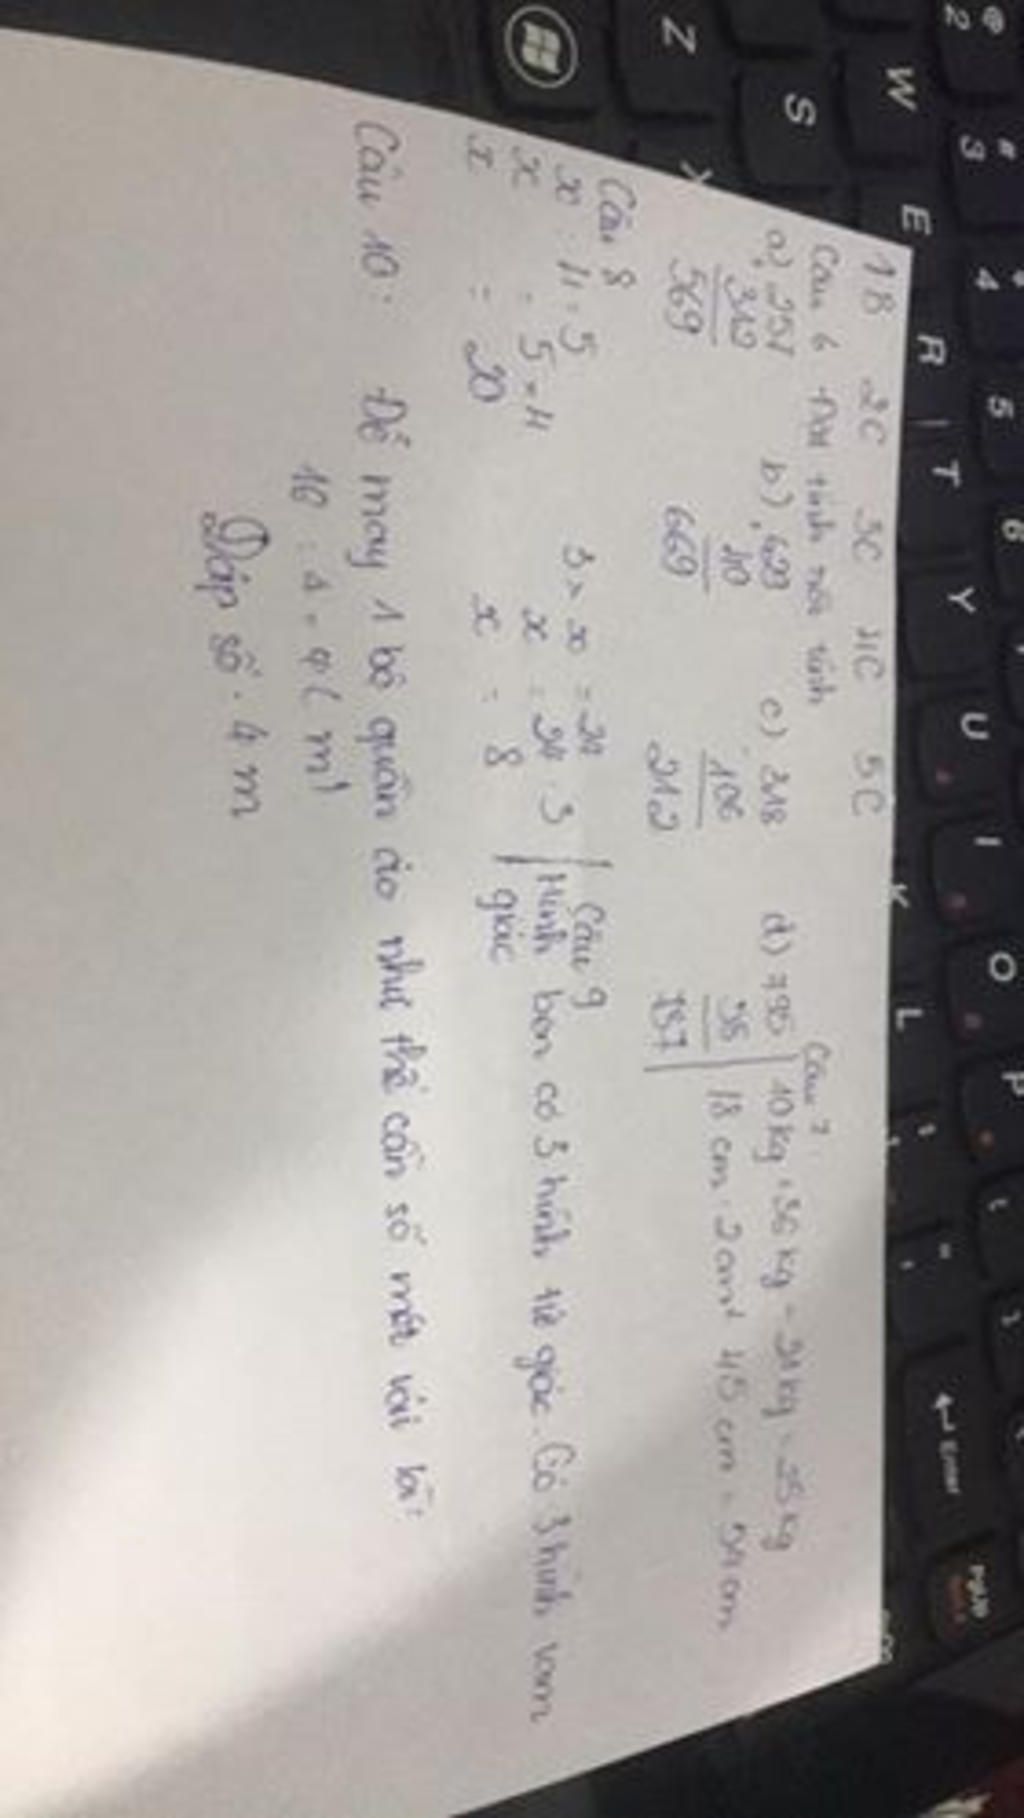 1B 2C 3C 4C 5C
Câu 6 Đặt tính rồi tính
a) 251 b) 629 c) 318 d) 795
319 40 106 38
569 669 212 757
Câu 7
10kg + 36 kg - 21kg = 25 kg
18 cm : 2 cm + 45 cm = 54 cm
Câu 8
x : 4 = 5 3 × x = 24
x = 5 × 4 x = 24 : 3
x = 20 x = 8
Câu 9
Hình bên có 3 hình tứ giác. Có 3 hình tam
giác
Câu 10: Để may 1 bộ quần áo như thế cần số mét vải là:
16 : 4 = 4 ( m )
Đáp số: 4 m
@ 2 # 3 4 5 6
W E R T Y U I O P
S K L
Z X
Enter
PgUp